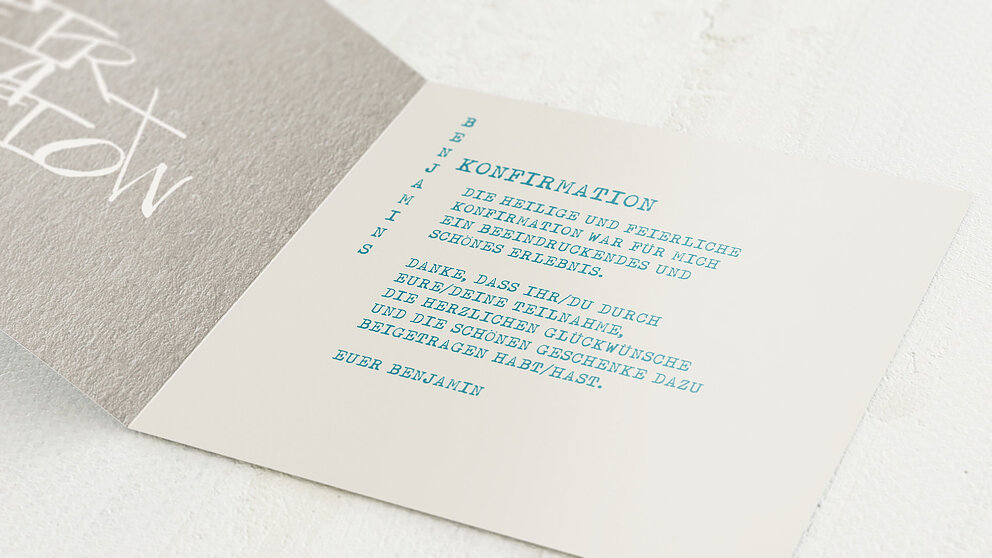 BENJAMINS
KONFIRMATION
DIE HEILIGE UND FEIERLICHE
KONFIRMATION WAR FÜR MICH
EIN BEEINDRUCKENDES UND
SCHÖNES ERLEBNIS.
DANKE, DASS IHR/DU DURCH
EURE/DEINE TEILNAHME,
DIE HERZLICHEN GLÜCKWÜNSCHE
UND DIE SCHÖNEN GESCHENKE DAZU
BEIGETRAGEN HABT/HAST.
EUER BENJAMIN